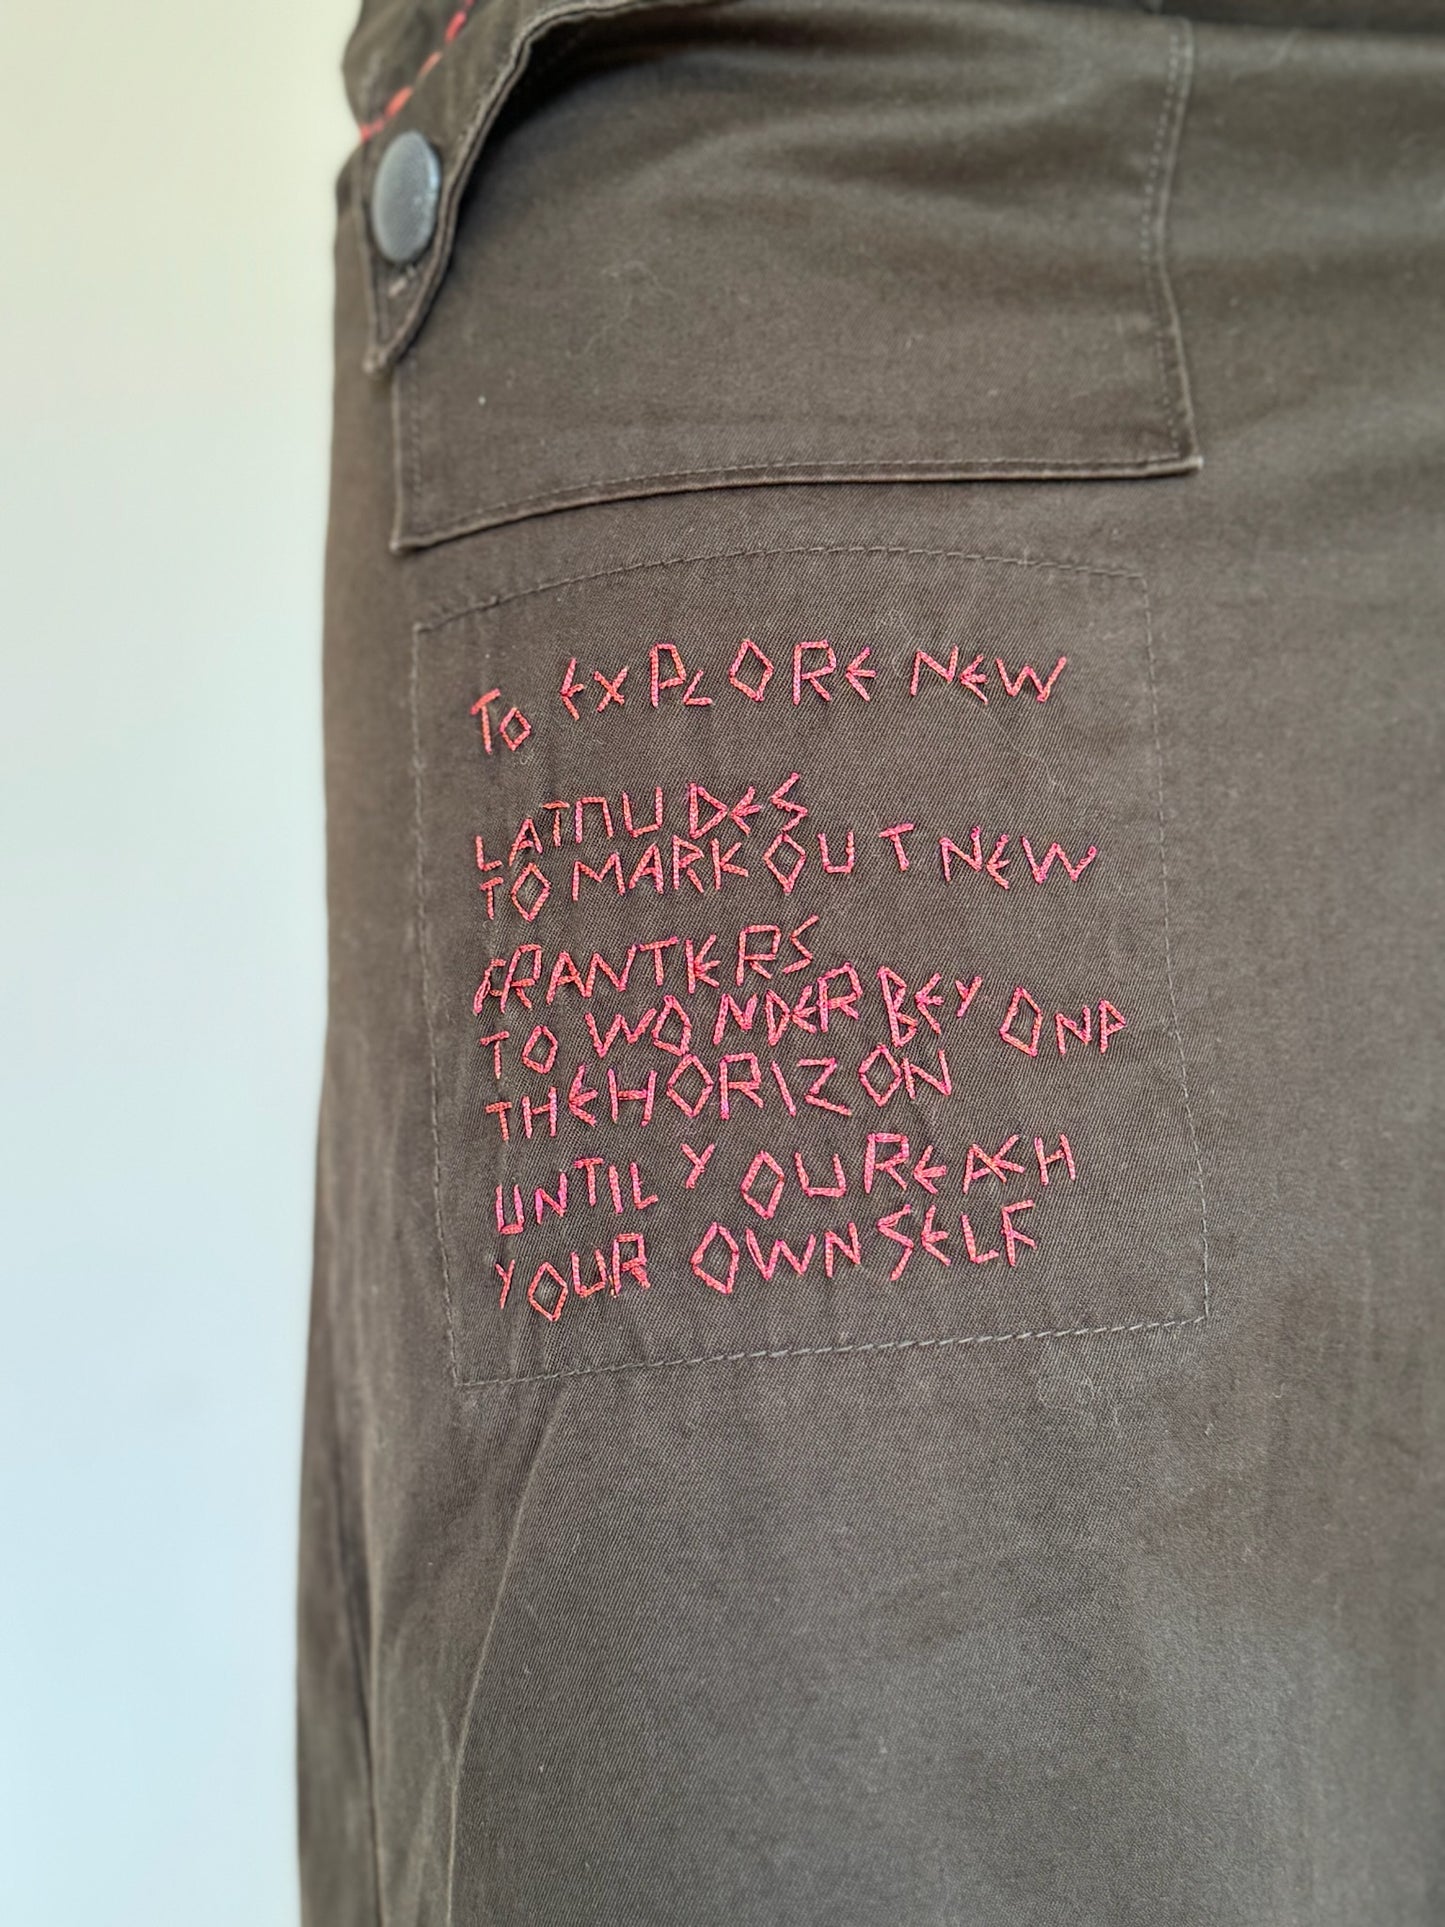 TO EXPLORE NEW
LATITUDES
TO MARK OUT NEW
FRANTIERS
TO WONDER BEYOND
THE HORIZON
UNTIL YOU REACH
YOUR OWN SELF